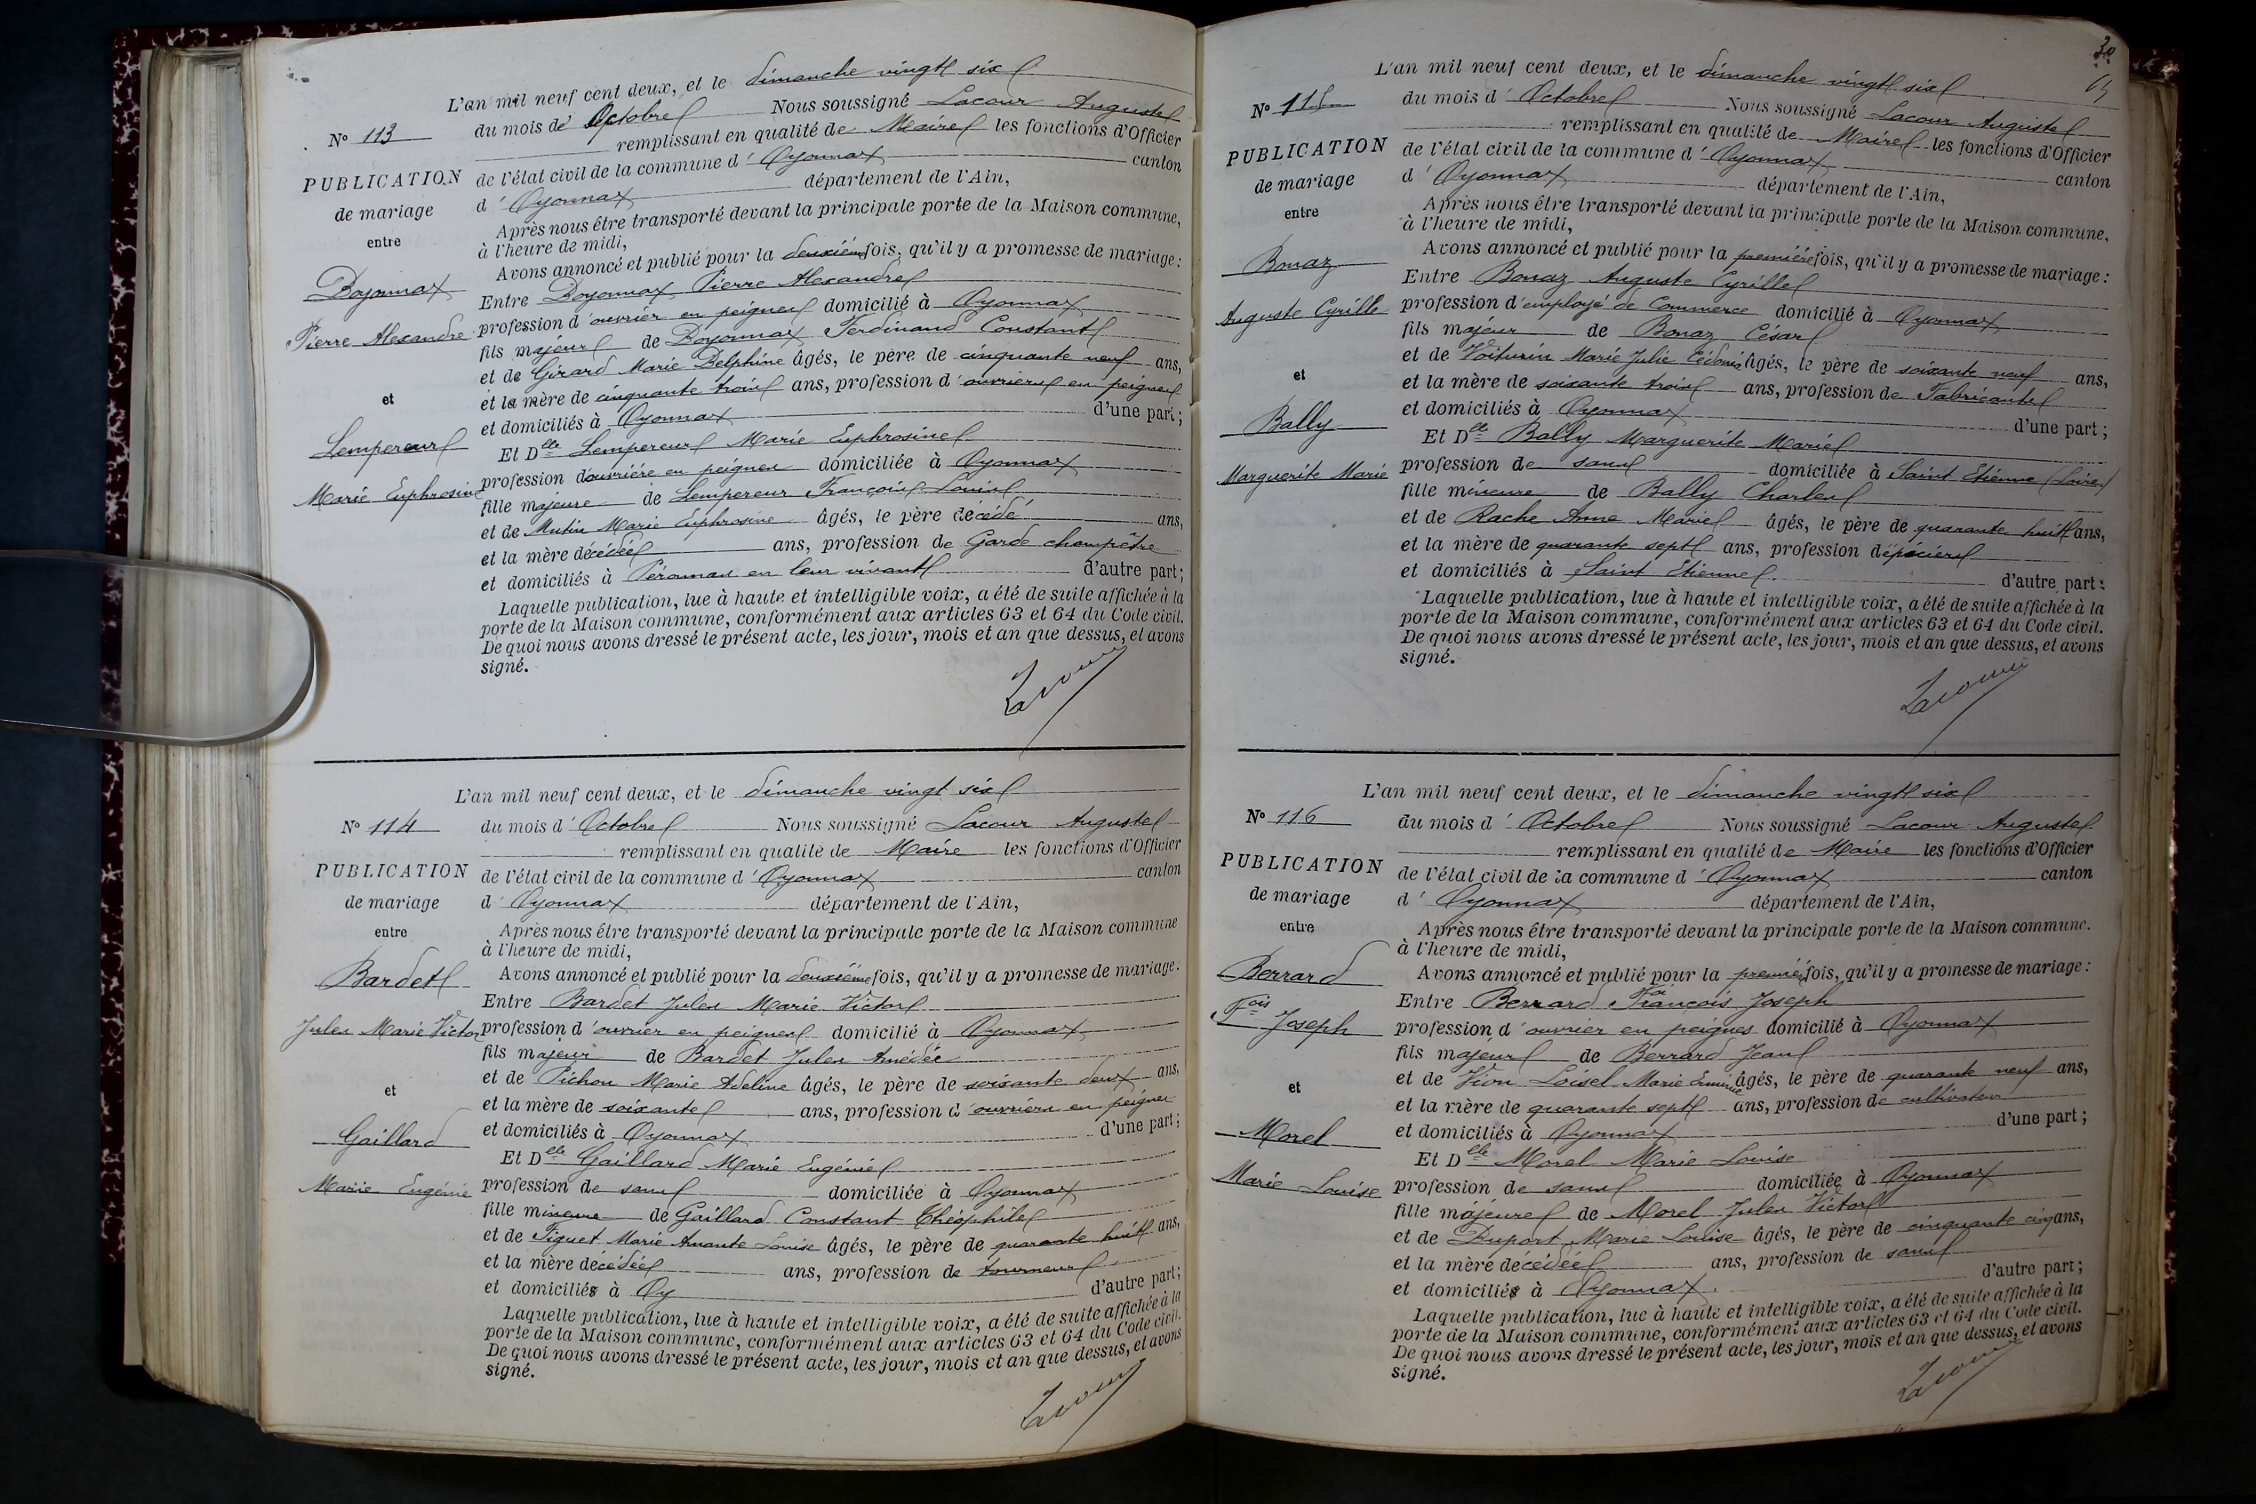 L'an mil neuf cent deux, et le dimanche vingt six
Nº 113
du mois de Octobre Nous soussigné Lacour Auguste
remplissant en qualité de Maire les fonctions d'Officier
PUBLICATION
de l'état civil de la commune d' Oyonnax canton
de mariage
d' Oyonnax département de l'Ain,
entre
Après nous être transporté devant la principale porte de la Maison commune,
à l'heure de midi,
Avons annoncé et publié pour la deuxième fois, qu'il y a promesse de mariage:
Doyonnax
Entre Doyonnax Pierre Alexandre
Pierre Alexandre
profession d'ouvrier en peignes domicilié à Oyonnax
fils majeur de Doyonnax Ferdinand Constant
et de Girard Marie Delphine âgés, le père de cinquante neuf ans,
et
et la mère de cinquante trois ans, profession d'ouvriers en peignes
et domiciliés à Oyonnax d'une part;
Lempereur
Et Delle Lempereur Marie Euphrosine
Marie Euphrosine
profession d'ouvrière en peignes domiciliée à Oyonnax
fille majeure de Lempereur François Louis
et de Mutin Marie Euphrosine âgés, le père décédé ans,
et la mère décédée ans, profession de Garde champêtre
et domiciliés à Péronnas en leur vivant d'autre part;
Laquelle publication, lue à haute et intelligible voix, a été de suite affichée à la
porte de la Maison commune, conformément aux articles 63 et 64 du Code civil.
De quoi nous avons dressé le présent acte, les jour, mois et an que dessus, et avons
signé.
Lacour
L'an mil neuf cent deux, et le dimanche vingt six
Nº 114
du mois d' Octobre Nous soussigné Lacour Auguste
remplissant en qualité de Maire les fonctions d'Officier
PUBLICATION
de l'état civil de la commune d' Oyonnax canton
de mariage
d' Oyonnax département de l'Ain,
entre
Après nous être transporté devant la principale porte de la Maison commune
à l'heure de midi,
Bardet
Avons annoncé et publié pour la deuxième fois, qu'il y a promesse de mariage:
Entre Bardet Jules Marie Victor
Jules Marie Victor
profession d'ouvrier en peignes domicilié à Oyonnax
fils majeur de Bardet Jules Amédée
et de Pichon Marie Adeline âgés, le père de soixante deux ans,
et
et la mère de soixante ans, profession d'ouvriers en peignes
Gaillard
et domiciliés à Oyonnax d'une part;
Et Delle Gaillard Marie Eugénie
Marie Eugénie
profession de sans domiciliée à Oyonnax
fille mineure de Gaillard Constant Théophile
et de Piquet Marie Amante Louise âgés, le père de quarante huit ans,
et la mère décédée ans, profession de tourneur
et domiciliés à Oy d'autre part;
Laquelle publication, lue à haute et intelligible voix, a été de suite affichée à la
porte de la Maison commune, conformément aux articles 63 et 64 du Code civil.
De quoi nous avons dressé le présent acte, les jour, mois et an que dessus, et avons
signé.
Lacour
30
L'an mil neuf cent deux, et le dimanche vingt six
Nº 115
du mois d' Octobre Nous soussigné Lacour Auguste
remplissant en qualité de Maire les fonctions d'Officier
PUBLICATION
de l'état civil de la commune d' Oyonnax canton
de mariage
d' Oyonnax département de l'Ain,
entre
Après nous être transporté devant la principale porte de la Maison commune,
à l'heure de midi,
Avons annoncé et publié pour la première fois, qu'il y a promesse de mariage:
Bonaz
Entre Bonaz Auguste Cyrille
Auguste Cyrille
profession d'employé de Commerce domicilié à Oyonnax
fils majeur de Bonaz César
et de Voiturin Marie Julie âgés, le père de soixante neuf ans,
et
et la mère de soixante trois ans, profession de Fabricants
et domiciliés à Oyonnax d'une part;
Bally
Et Delle Bally Marguerite Marie
Marguerite Marie
profession de sans domiciliée à Saint Etienne (Loire)
fille mineure de Bally Charles
et de Rache Anne Marie âgés, le père de quarante huit ans,
et la mère de quarante sept ans, profession d'épiciers
et domiciliés à Saint Etienne d'autre part:
Laquelle publication, lue à haute et intelligible voix, a été de suite affichée à la
porte de la Maison commune, conformément aux articles 63 et 64 du Code civil.
De quoi nous avons dressé le présent acte, les jour, mois et an que dessus, et avons
signé.
Lacour
L'an mil neuf cent deux, et le dimanche vingt six
Nº 116
du mois d' Octobre Nous soussigné Lacour Auguste
remplissant en qualité de Maire les fonctions d'Officier
PUBLICATION
de l'état civil de la commune d' Oyonnax canton
de mariage
d' Oyonnax département de l'Ain,
entre
Après nous être transporté devant la principale porte de la Maison commune.
à l'heure de midi,
Berrard
Avons annoncé et publié pour la première fois, qu'il y a promesse de mariage:
Entre Berrard François Joseph
Fois Joseph
profession d'ouvrier en peignes domicilié à Oyonnax
fils majeur de Berrard Jean
et de Vion Loisel Marie âgés, le père de quarante neuf ans,
et
et la mère de quarante sept ans, profession de cultivateurs
Morel
et domiciliés à Oyonnax d'une part;
Et Delle Morel Marie Louise
Marie Louise
profession de sans domiciliée à Oyonnax
fille majeure de Morel Jules Victor
et de Duport Marie Louise âgés, le père de cinquante cinq ans,
et la mère décédée ans, profession de sans
et domiciliés à Oyonnax d'autre part;
Laquelle publication, lue à haute et intelligible voix, a été de suite affichée à la
porte de la Maison commune, conformément aux articles 63 et 64 du Code civil.
De quoi nous avons dressé le présent acte, les jour, mois et an que dessus, et avons
signé.
Lacour